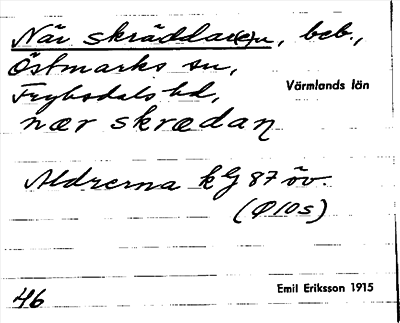 När skräddar(e)n, beb.,
Östmarks sn,
Fryksdals hd,
Värmlands län
nær skrædan
Aldrerna kg 87 öv.
(Ø10s)
46
Emil Eriksson 1915